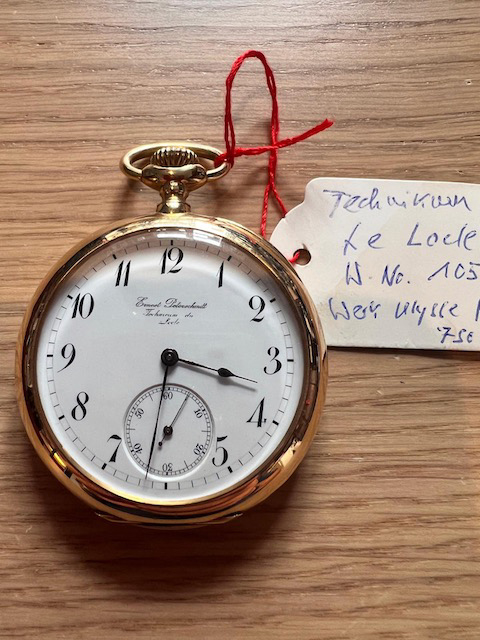 12
11
1
10
2
9
3
8
4
7
5
Technicum du
Locle
60
50
10
40
20
30
Technikum
Le Locle
W. No. 105
Werk Ulysse
750